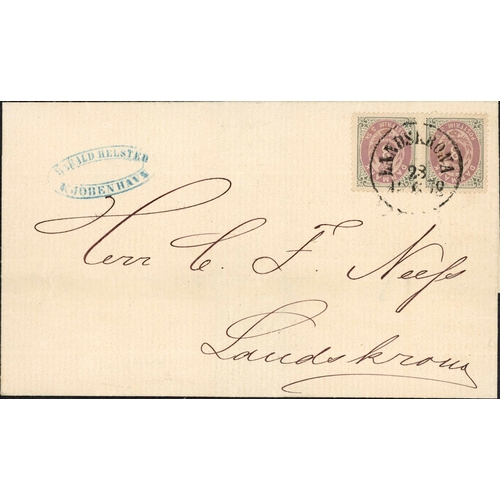 OSVALD HELSTED
KJÖBENHAVN
LANDSKRONA
23
Herr C. F. Neess
Landskrona